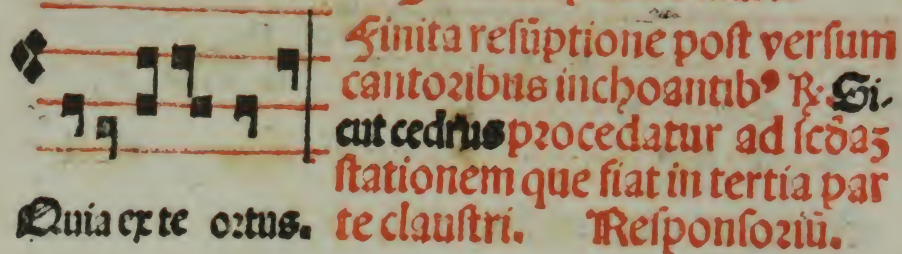 Finita resūptione post versum
cantoribus inchoantib⁹ ℟. Si-
cut cedrus procedatur ad scd̄aꝫ
stationem que fiat in tertia par
Quia ex te ortus. te claustri. Responsoriū.